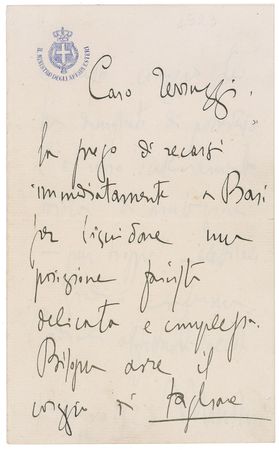 IL MINISTRO DEGLI AFFARI ESTERI
Caro Teruzzi,
La prego di recarsi
immediatamente a Bari
per liquidare una
posizione fascista
delicata e complessa.
Bisogna avere il
coraggio di tagliare